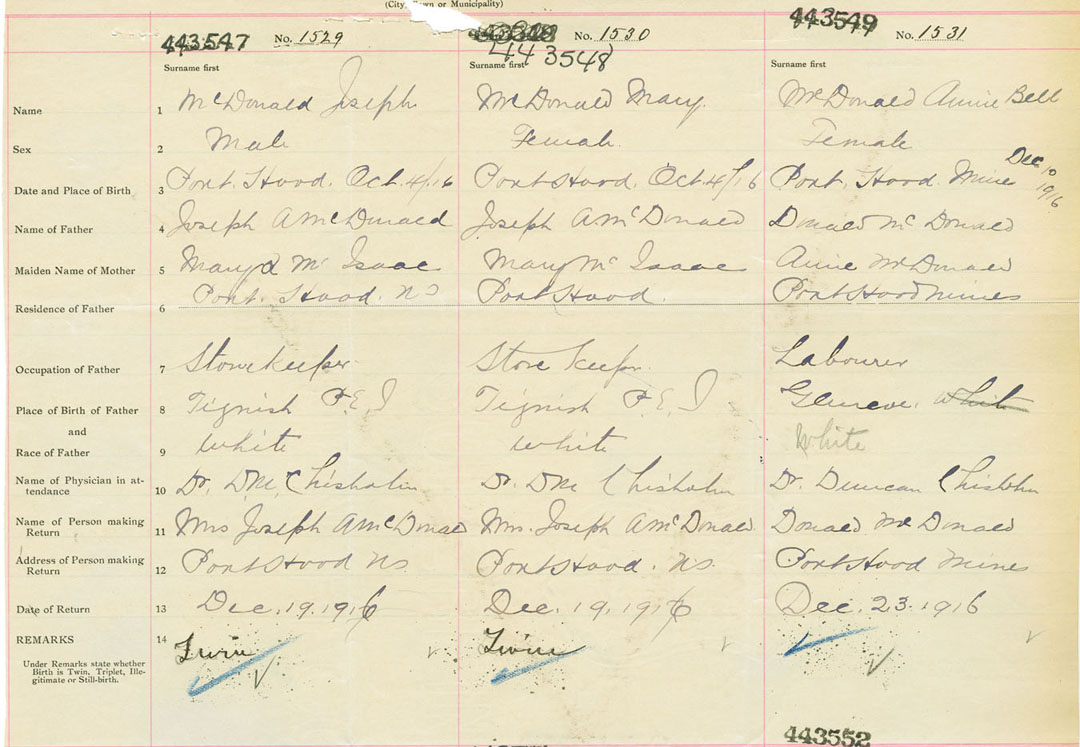 (City, Town or Municipality)
443547 No. 1529 443548 No. 1530 443549 No. 1531
Surname first Surname first Surname first
Name 1 McDonald Joseph McDonald Mary. McDonald Annie Bell
Sex 2 Male Female Female
Date and Place of Birth 3 Port. Hood. Oct. 4/16 Port Hood. Oct. 4/16 Port. Hood. Mines Dec 10 1916
Name of Father 4 Joseph A McDonald Joseph A. McDonald Donald McDonald
Maiden Name of Mother 5 Mary Mc Isaac Mary Mc Isaac Annie McDonald
Residence of Father 6 Port. Hood. NS Port Hood. Port Hood mines
Occupation of Father 7 Storekeeper Store Keeper. Labourer
Place of Birth of Father 8 Tignish P.E.I Tignish P.E.I White
and
Race of Father 9 White White White
Name of Physician in at-
tendance 10 Dr. DM Chisholm Dr. DM Chisholm Dr. Duncan Chisholm
Name of Person making
Return 11 Mrs Joseph A McDonald Mrs. Joseph A McDonald Donald McDonald
Address of Person making
Return 12 Port Hood NS Port Hood. NS. Port Hood Mines
Date of Return 13 Dec. 19. 1916 Dec. 19, 1916 Dec. 23. 1916
REMARKS 14 Twin Twin
Under Remarks state whether
Birth is Twin, Triplet, Ille-
gitimate or Still-birth.
443552